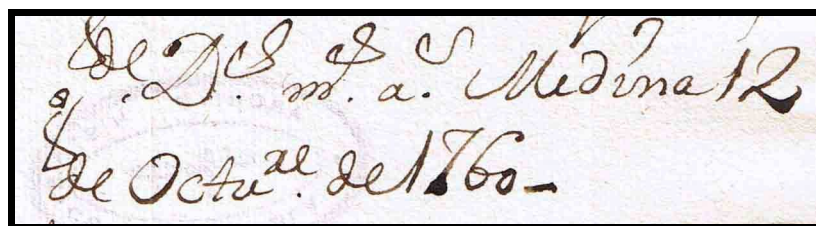 g.de D.s m.s a.s Medina 12
de Octu.re de 1760